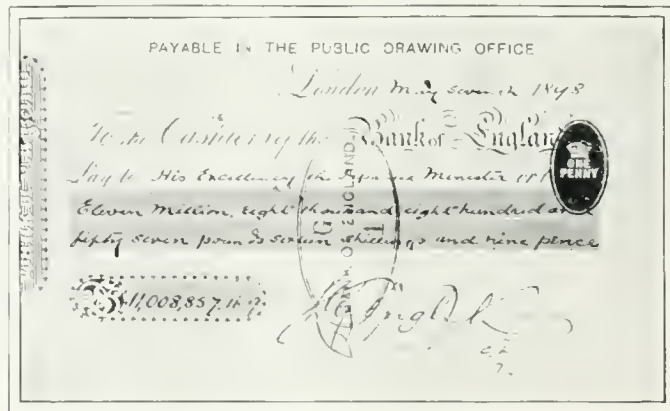 PAYABLE IN THE PUBLIC DRAWING OFFICE
London May seventh 1898
To the Cashier of the Bank of England
ONE PENNY
Pay to His Excellency the Minister
Eleven Million, eight thousand eight hundred and
fifty seven pounds sixteen shillings and nine pence
BANK OF ENGLAND
G
1
£11,008,857.16.9